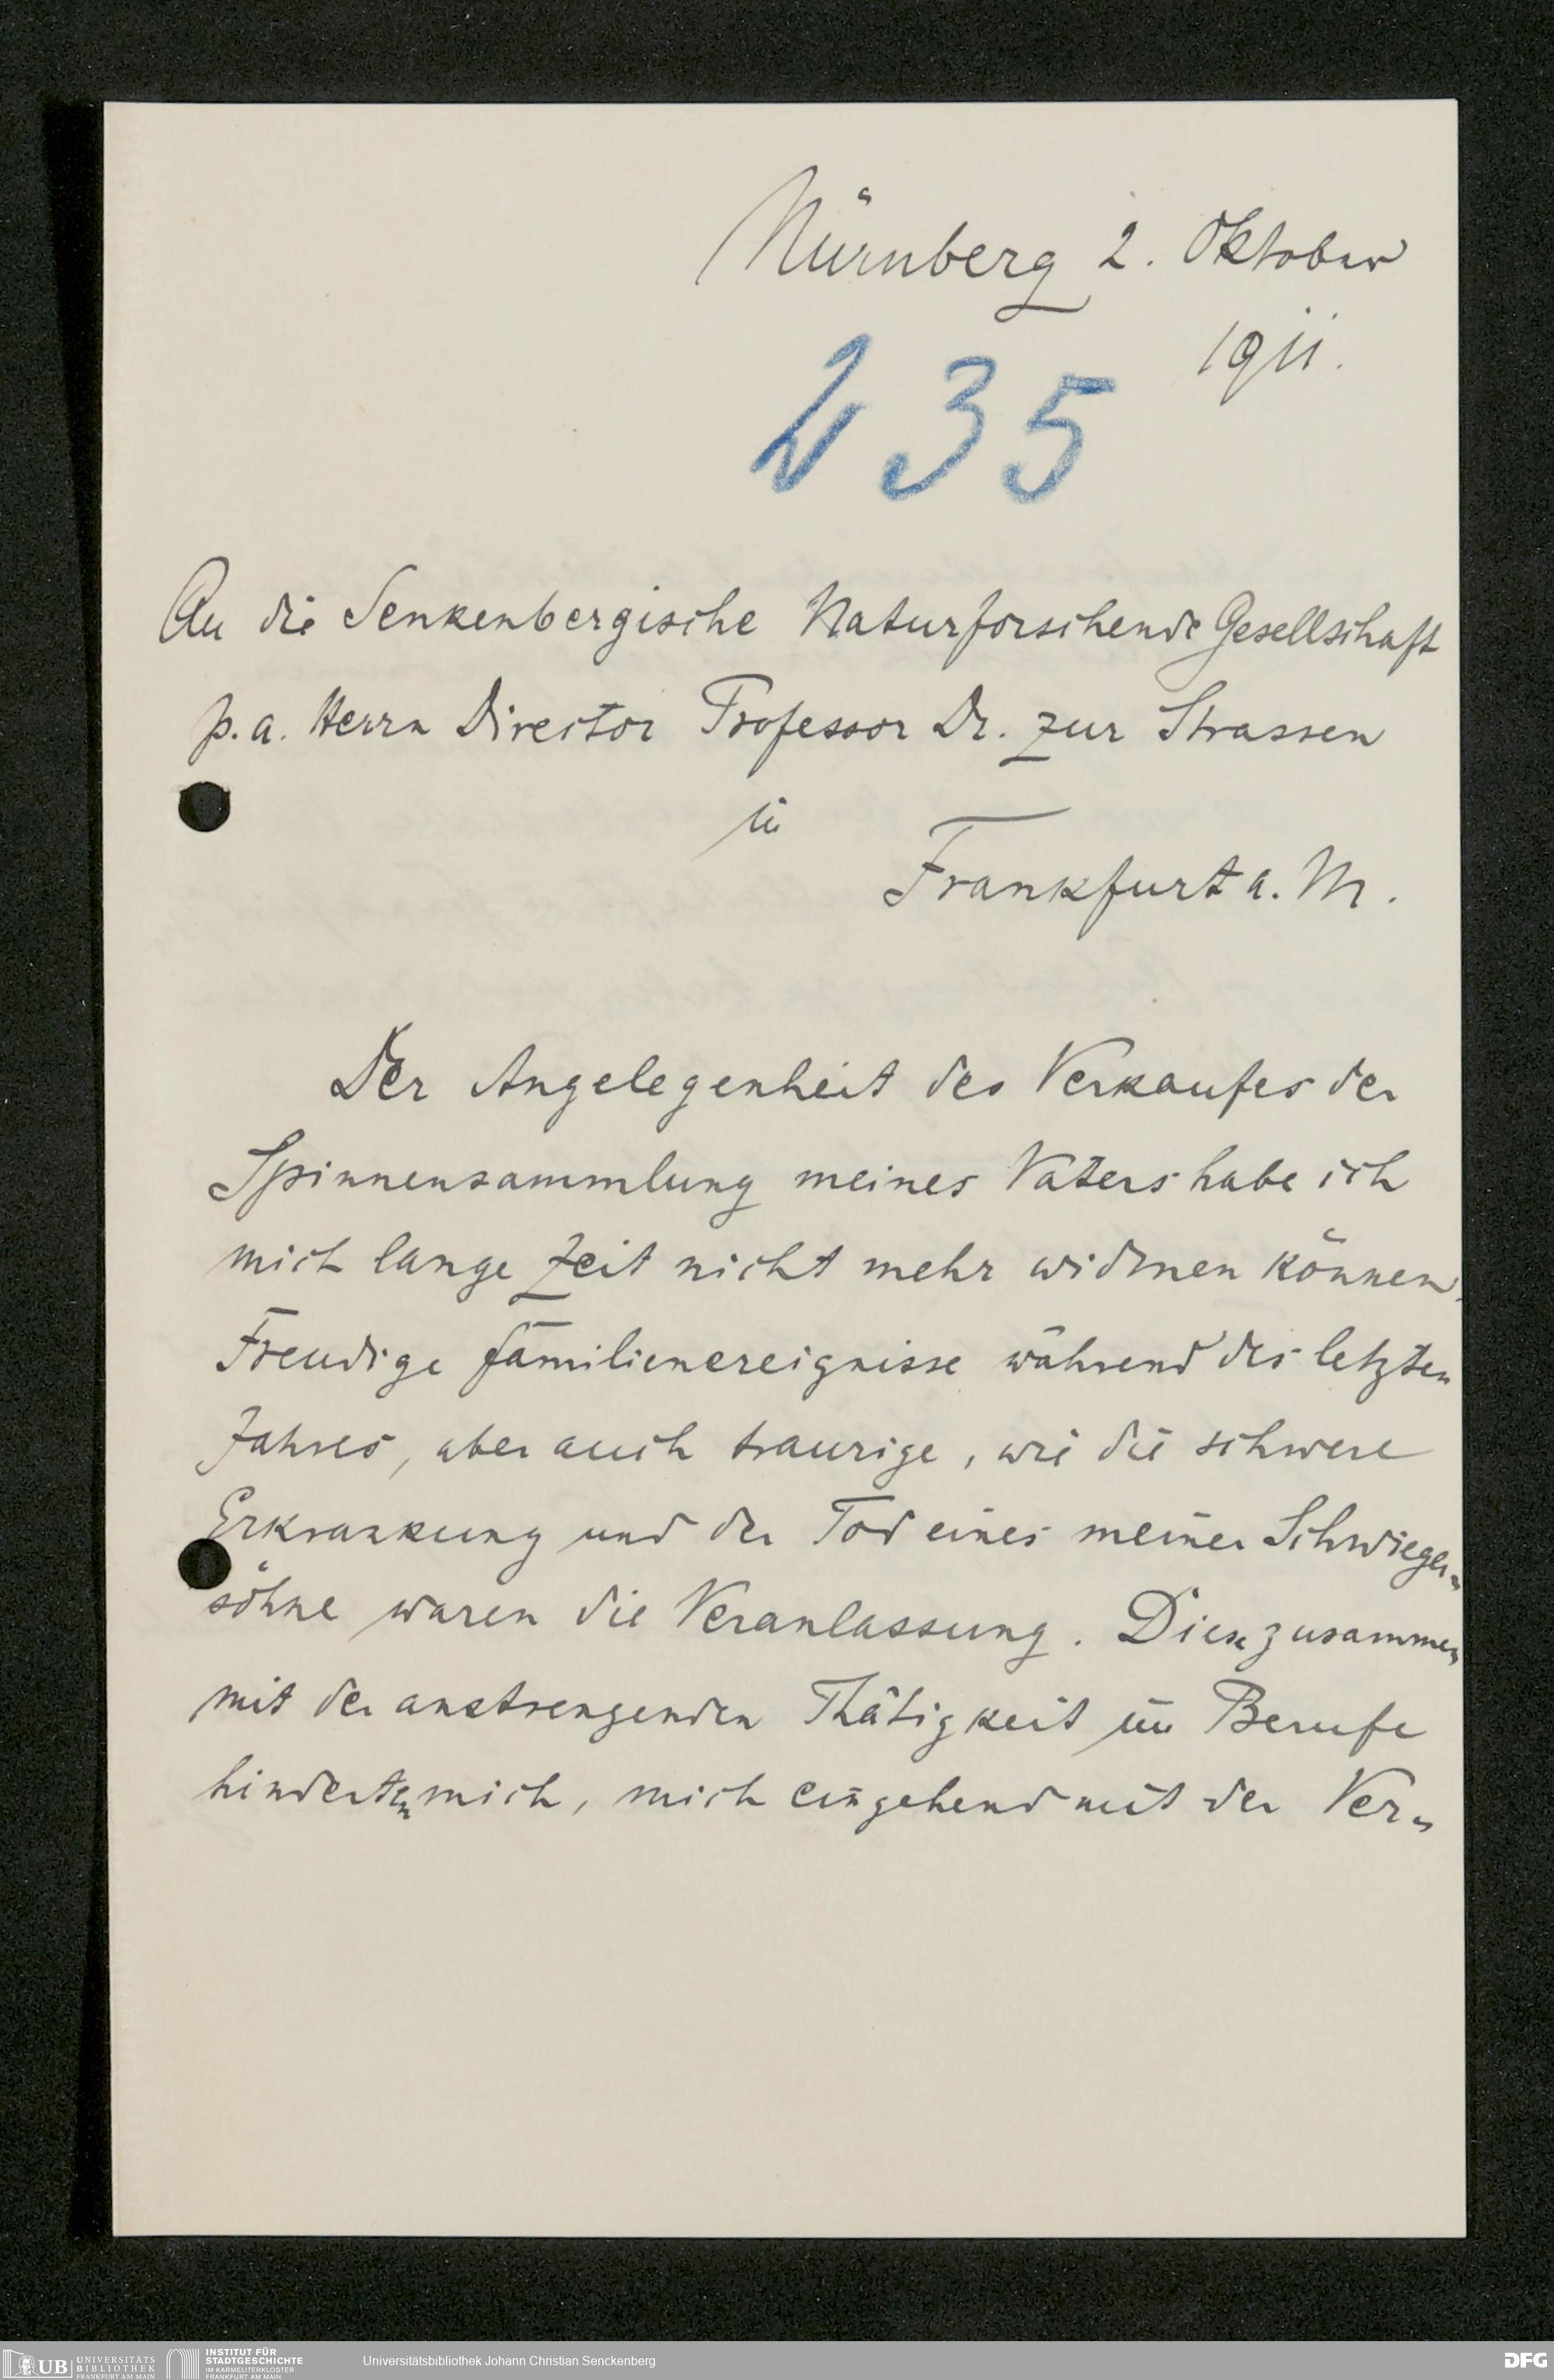 Nürnberg 2. Oktober
1911.
235
An die Senkenbergische Naturforschende Gesellschaft
p. a. Herrn Director Professor Dr. zur Strassen
in
Frankfurt a. M.
Der Angelegenheit des Verkaufes der
Spinnensammlung meines Vaters habe ich
mich lange Zeit nicht mehr widmen können.
Freudige Familienereignisse während des letzten
Jahres, aber auch traurige, wie die schwere
Erkrankung und der Tod eines meiner Schwieger-
söhne waren die Veranlassung. Diese zusammen
mit der anstrengenden Thätigkeit im Berufe
hinderten mich, mich eingehend mit der Ver-
UB UNIVERSITÄTS BIBLIOTHEK FRANKFURT AM MAIN
INSTITUT FÜR STADTGESCHICHTE IM KARMELITERKLOSTER FRANKFURT AM MAIN
Universitätsbibliothek Johann Christian Senckenberg
DFG